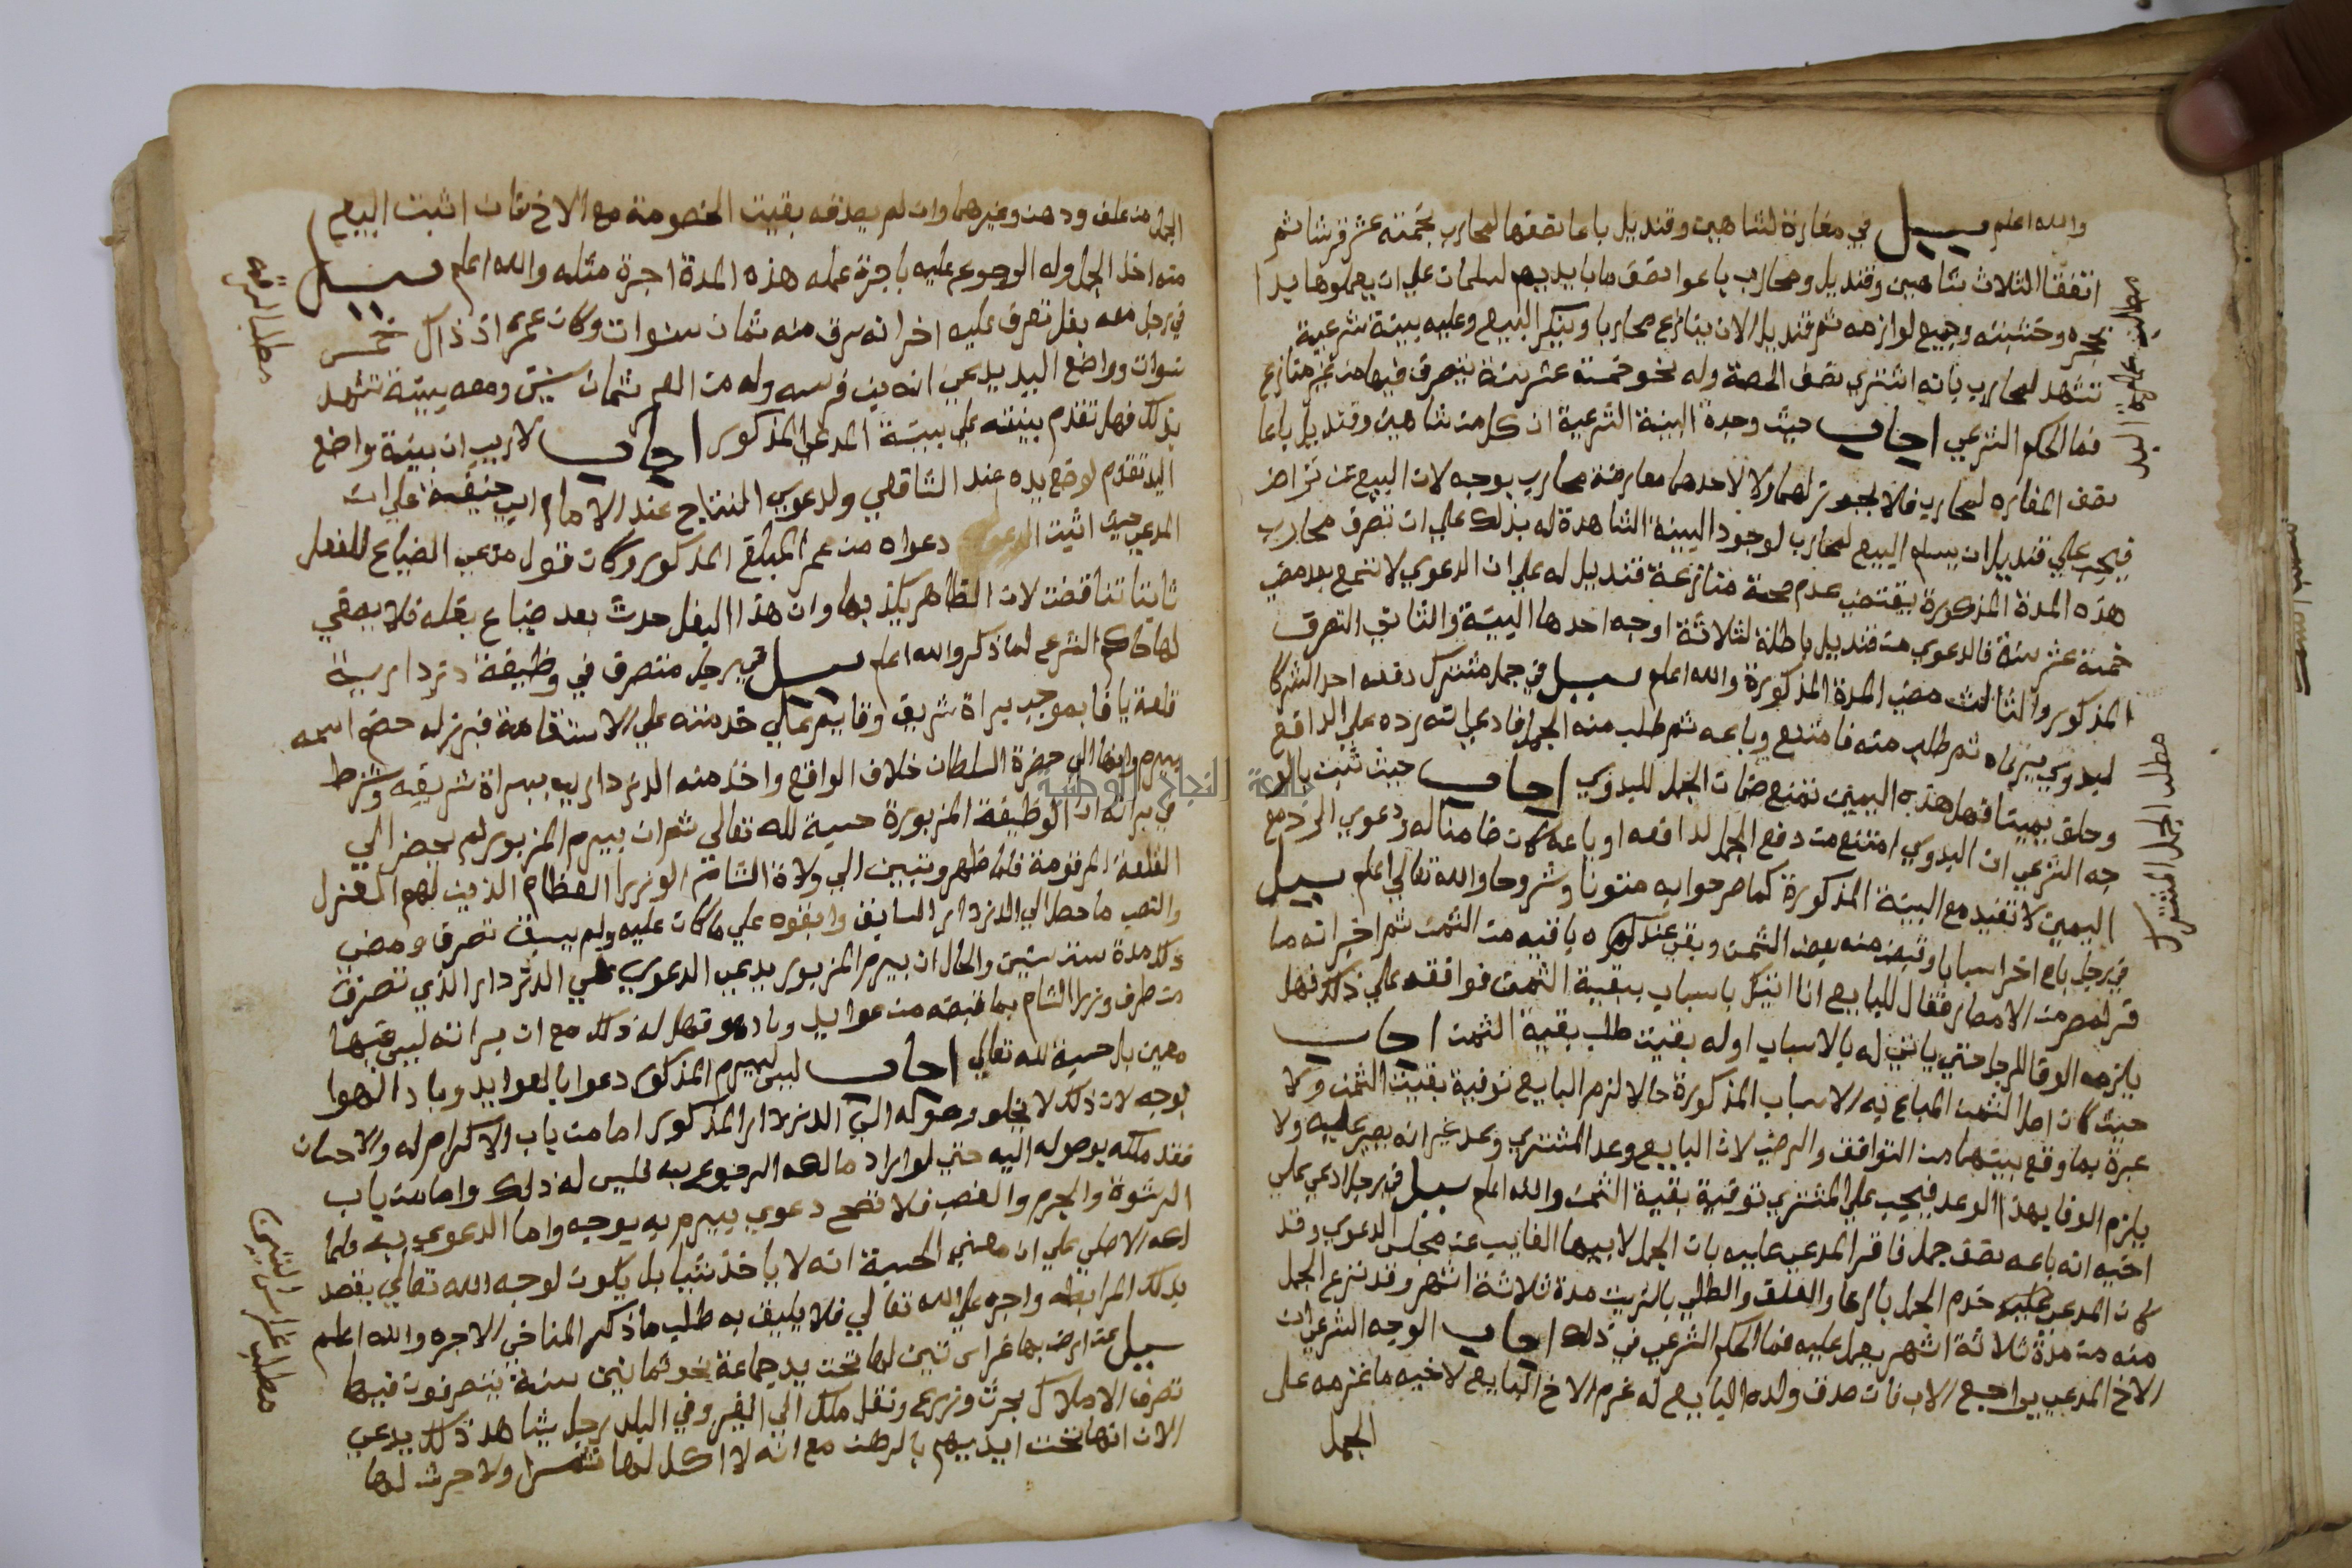 والله اعلم سيل في مغارة لشاهين وقنديل باعا نصفها لمحارب بخمسة عشر قرشا ثم
اتفقا الثلاث شاهين وقنديل ومحارب باعوا نصف ما بايديهم لسلمان علي ان يعملوها بدا
بحجره وخشبته وجميع لوازمه ثم قنديل الان ينازع محاربا وينكر البيع وعليه بينة شرعية
تشهد لمحارب بانه اشتري نصف الحصة وله نحو خمسة عشر سنة يتصرف فيها من غير منازع
فما الحكم الشرعي اجاب حيث وجدة البينة الشرعية ان كل من شاهين وقنديل باعا
نصف المغاره لمحارب فلا يجوز لهما ولا لاحدهما معارضة محارب بوجه لان البيع عن تراض
فيجب علي قنديل ان يسلم البيع لمحارب لوجود البينة الشاهدة له بذلك علي ان تصرف محارب
هذه المدة المذكورة يقتضي عدم صحة منازعة قنديل له علي ان الدعوي لا تسمع بعد مضي
خمسة عشر سنة فالدعوي من قنديل باطلة لثلاثة اوجه احدها البينة والثاني التصرف
المذكور والثالث مضي المدة المذكورة والله اعلم سيل في جمل مشترك دفعه احد الشركا
لبدوي يرعاه ثم طلبه منه فامتنع وباعه ثم طلب منه الجمل فادعي انه رده علي الدافع
وحلف يمينا فهل هذه اليمين تمنع ضمان الجمل للبدوي اجاب حيث ثبت بالو
جه الشرعي ان البدوي امتنع من دفع الجمل لدافعه او باعه كان ضامنا له ودعوي الرد مع
اليمين لا تفيد مع البينة المذكورة كما صرحوا به متونا وشروحا والله تعالي اعلم سيل
في رجل باع اخر اسبابا وقبض منه بعض الثمن وبقي عنده باقيه من الثمن ثم اخبر انه ما
فر لمصر من الامصار فقال للبايع انا اتيك باسباب ببقية الثمن فوافقه علي ذلك فهل
يلزمه الوفا للرجل حتي ياتي له بالاسباب او له بقيت طلب بقية الثمن اجاب
حيث كان اصل الثمن المباع به الاسباب المذكورة حالا لزم البايع توفية بقيت الثمن ولا
عبرة بما وقع بينهما من التوافق والرضي لان البايع وعد المشتري وعد غير انه يصبر عليه ولا
يلزم الوفا بهذا الوعد فيجب علي المشتري توفية بقية الثمن والله اعلم سيل في رجل ادعي علي
اخيه انه باعه نصف جمل فاقر المدعي عليه بان الجمل لابيها الغايب عن مجلس الدعوي وقد
كان المدعي عليه خدم الجمل بالرعا والعلف والطلي بالزيت مدة ثلاثة اشهر وقد نزع الجمل
منه من مدة ثلاثة اشهر يعمل عليه فما الحكم الشرعي في ذلك اجاب الوجه الشرعي ان
الاخ المدعي يراجع الاب فان صدق ولده البايع له غرم الاخ البايع لاخيه ما غرمه علي
الجمل
مطلب الجمل المشترك
الجمل من علف ودهن وغيرهما وان لم يصدقه بقيت الخصومة مع الاخ فان اثبت البيع
منه اخذ الجمل وله الرجوع عليه باجرة عمله هذه المدة اجرة مثله والله اعلم سيل
في رجل معه بغل تعرف عليه اخر انه سرق منه ثمان سنوات وكان عمره اذ ذاك خمس
سنوات وواضع اليد يدعي انه بن فرسه وله من العمر ثمان سنين ومعه بينة تشهد
بذلك فهل تقدم بينته علي بينة المدعي المذكور اجاب لا ريب ان بينة واضع
اليد تقدم لوضع يده عند الشافعي ولدعوي النتاج عند الامام ابي حنيفة علي ان
المدعي حيث اثبت دعواه من عمر المبلغ المذكور وكان قول مدعي الضياع للبغل
ثانيا تناقضت لان الظاهر يكذبها وان هذا البغل حدث بعد ضياع بغله فلا يبقي
لها حاكم الشرع لما ذكر والله اعلم سيل في رجل متصرف في وظيفة دزدارية
قلعة يافا بموجب براة شريف وقايم علي خدمته علي الاستقامة فبرز له خصم اسمه
بيرم وانها الي حضرة السلطان خلاف الواقع واخذ منه الدزدارية ببراة شريفه وشرط
في براته ان الوظيفة المزبورة حسبة لله تعالي ثم ان بيرم المزبور لم يحضر الي
القلعة المرقومة فلما ظهر وتبين الي ولاة الشام الوزرا العظام الذين لهم العزل
والنصب ما حصل الي الدزدار السابق وابقوه علي ما كان عليه ولم يبيق تصرف ومضي
ذلك مدة سنتين والحال ان بيرم المزبور يدعي الدعوي علي الدزدار الذي تصرف
من طرف وزير الشام بما قبضه من عوايد وباد هوا فهل له ذلك مع ان براته ليس فيها
معين بل حسبة لله تعالي اجاب ليس لبيرم المذكور دعوا بالعوايد وباد الهوا
بوجه لان ذلك لا يخلو وصوله الي الدزدار المذكور اما من باب الاكرام له والاحسان
فقد ملكه بوصوله اليه حتي لو اراد مالكه الرجوع به فليس له ذلك واما من باب
الرشوة والجرم والغصب فلا تصح دعوي بيرم به بوجه واما الدعوي به فلما
لعه الاصلي علي ان معني الحسبة انه لا ياخذ شيا بل يكون لوجه الله تعالي بقصد
بذلك المرابطه واجره علي الله تعالي فلا يليق به طلب ما ذكر المنافي الاجره والله اعلم
سيل عن ارض بها غراس تين لها تحت يد جماعة نحو ثمانين سنة يتصرفون فيها
تصرف الاملاك بحرث وزرع ونقل ملك الي الغير وفي البلد رجل يشاهد ذلك يدعي
الان انها تحت ايديهم بالرهن مع انه لا اكل لها ولا حرث لها
مطلب غراس التين